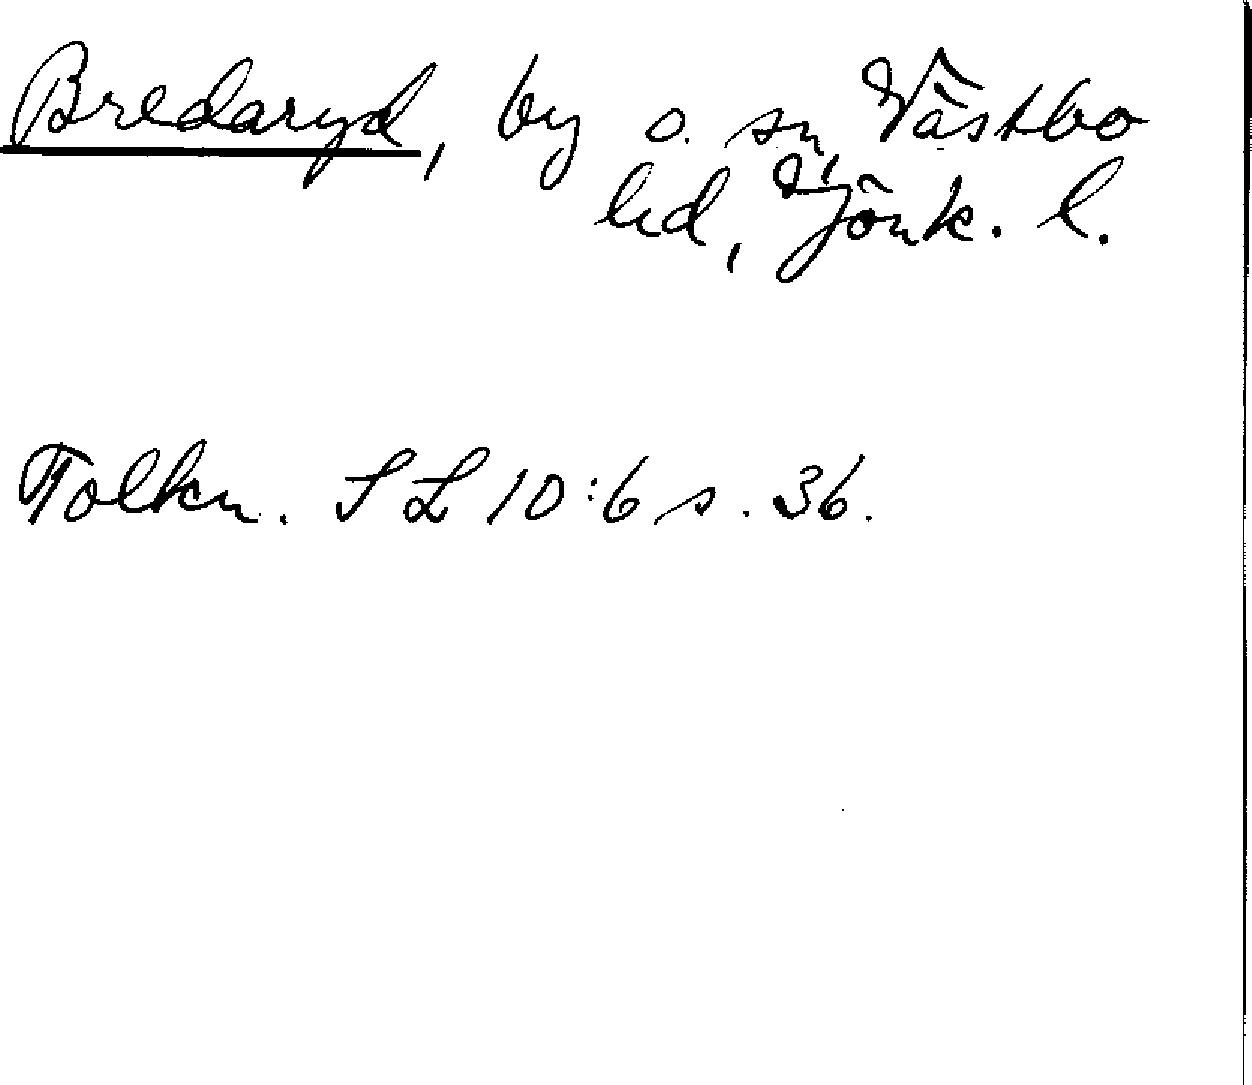 Bredaryd, by o. sn, Västbo
hd, Jönk. l.
Tolkn. SL 10:6 s. 36.